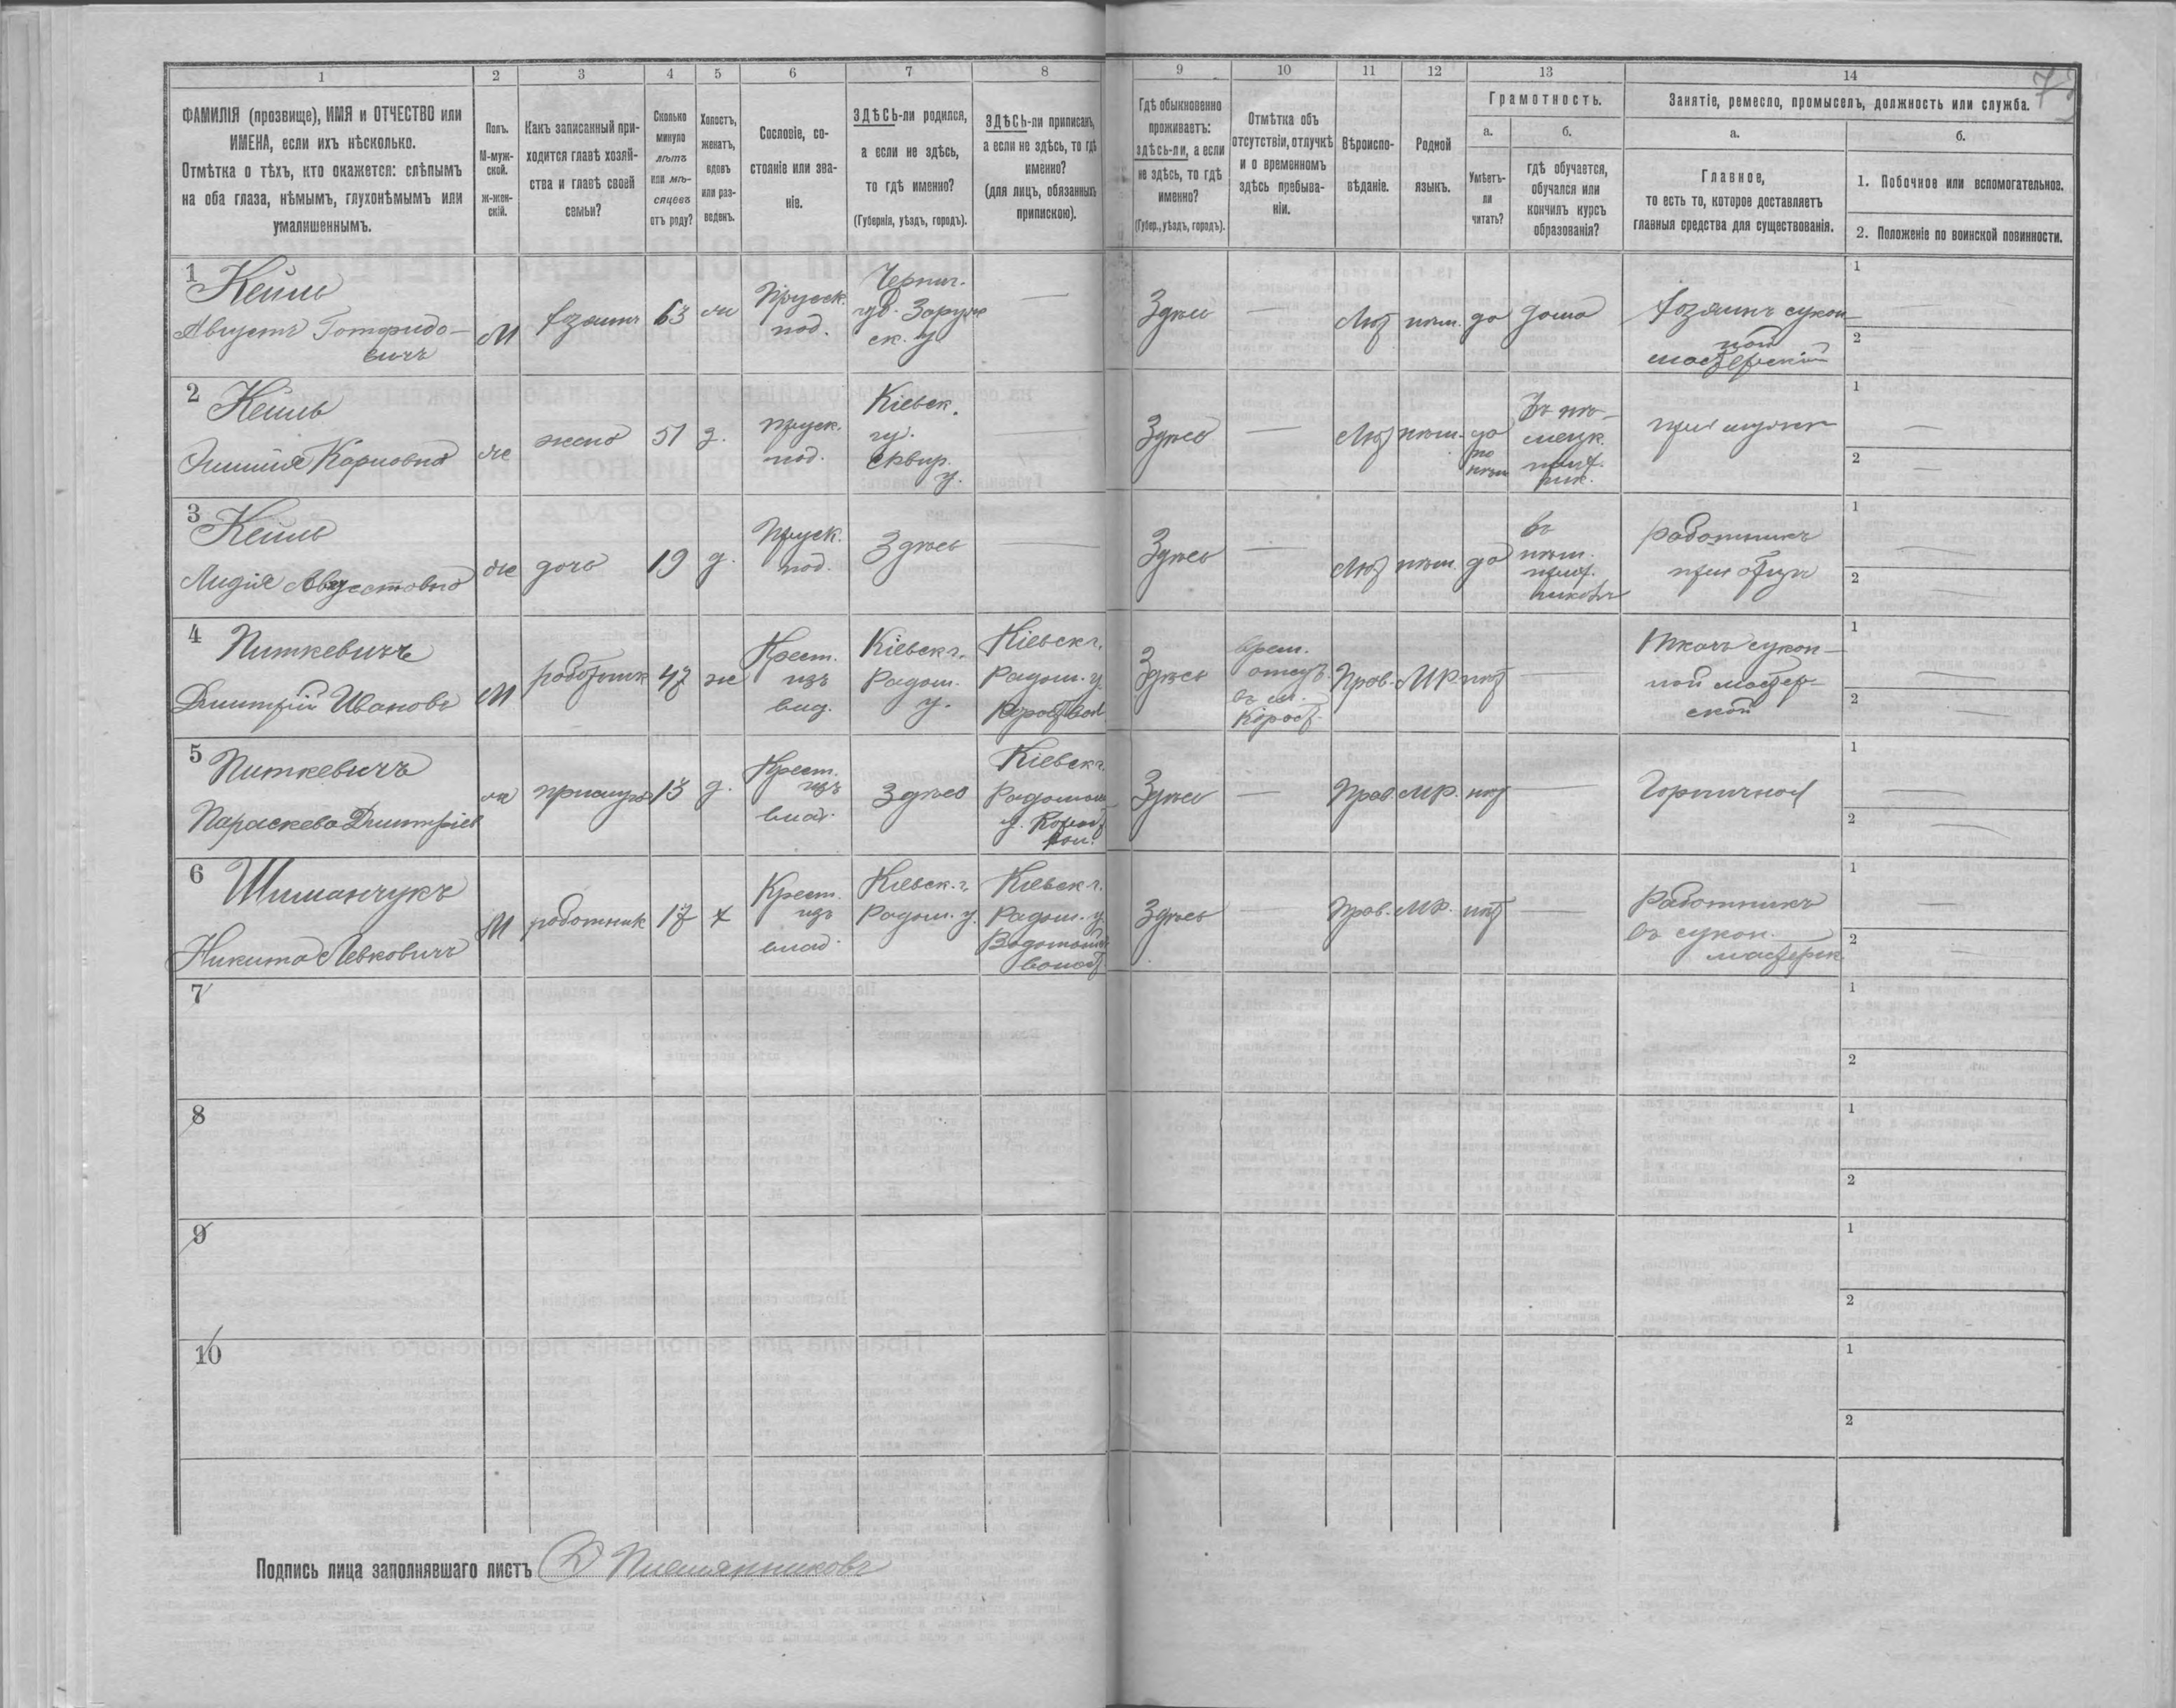 1
2
3
4
5
6
7
8
9
10
11
12
13
14
ФАМИЛІЯ (прозвище), ИМЯ и ОТЧЕСТВО или
ИМЕНА, если ихъ нѣсколько.
Отмѣтка о тѣхъ, кто окажется: слѣпымъ
на оба глаза, нѣмымъ, глухонѣмымъ или
умалишеннымъ.
Полъ.
М-муж-
ской.
ж-жен-
скій.
Какъ записанный при-
ходится главѣ хозяй-
ства и главѣ своей
семьи?
Сколько
минуло
лѣтъ
или мѣ-
сяцевъ
отъ роду?
Холостъ,
женатъ,
вдовъ
или раз-
веденъ.
Сословіе, со-
стояніе или зва-
ніе.
ЗДѢСЬ-ли родился,
а если не здѣсь,
то гдѣ именно?
(Губернія, уѣздъ, городъ).
ЗДѢСЬ-ли приписанъ,
а если не здѣсь, то гдѣ
именно?
(для лицъ, обязанныхъ
припискою).
Гдѣ обыкновенно
проживаетъ:
здѣсь-ли, а если
не здѣсь, то гдѣ
именно?
(Губер., уѣздъ, городъ).
Отмѣтка объ
отсутствіи, отлучкѣ
и о временномъ
здѣсь пребыва-
ніи.
Вѣроиспо-
вѣданіе.
Родной
языкъ.
Грамотность.
а.
б.
Умѣетъ-
ли
читать?
гдѣ обучается,
обучался или
кончилъ курсъ
образованія?
Занятіе, ремесло, промыселъ, должность или служба.
а.
б.
Главное,
то есть то, которое доставляетъ
главныя средства для существованія.
1. Побочное или вспомогательное.
2. Положеніе по воинской повинности.
1
Кейль
Августъ Готфридо-
вичъ
М
хозяинъ
63
Прусск.
под.
Черниг.
губ.
ск. у
Здѣсь
Лют
нѣм.
да
дома
хозяинъ сукон-
ной
мастерской
1
2
2
Кейль
Эмилія Карловна
ж
жена
51
з.
прусск.
под.
Кіевск.
гу.
Сквир.
у.
Здѣсь
Лют
нѣм.
да
по
нѣм
Въ нѣ-
мецк.
при мужѣ
1
2
3
Кейль
Лидія Августовна
ж
дочь
19
д.
Прусск.
под.
Здѣсь
Здѣсь
Лют
нѣм.
да
въ
нѣм.
при отцѣ
1
2
4
Питкевичъ
Дмитрій Ивановъ
М
работник
47
ж
Крест.
изъ
влад.
Кіевск г.
Радом.
у.
Кіевск г.
Радом. у.
Здѣсь
врем.
отсут.
въ м.
Корост.
Прав.
МР.
нѣт
Ткачъ сукон-
ной мастер-
ской
1
2
5
Питкевичъ
Параскева Дмитріев
ж
прислуга
13
д.
Крест.
изъ
влад.
Здѣсь
Кіевск г.
Радомысл
Здѣсь
Прав
МР.
нѣт
Горничной
1
2
6
Шиманчукъ
Никита Левковичъ
М
работник
17
х
Крест.
изъ
влад.
Кіевск. г.
Радом. у.
Кіевск г.
Радом. у.
волост
Здѣсь
Прав.
МР.
нѣт
Работникъ
въ сукон.
мастерск
1
2
7
1
2
8
1
2
9
1
2
10
1
2
Подпись лица заполнявшаго листъ